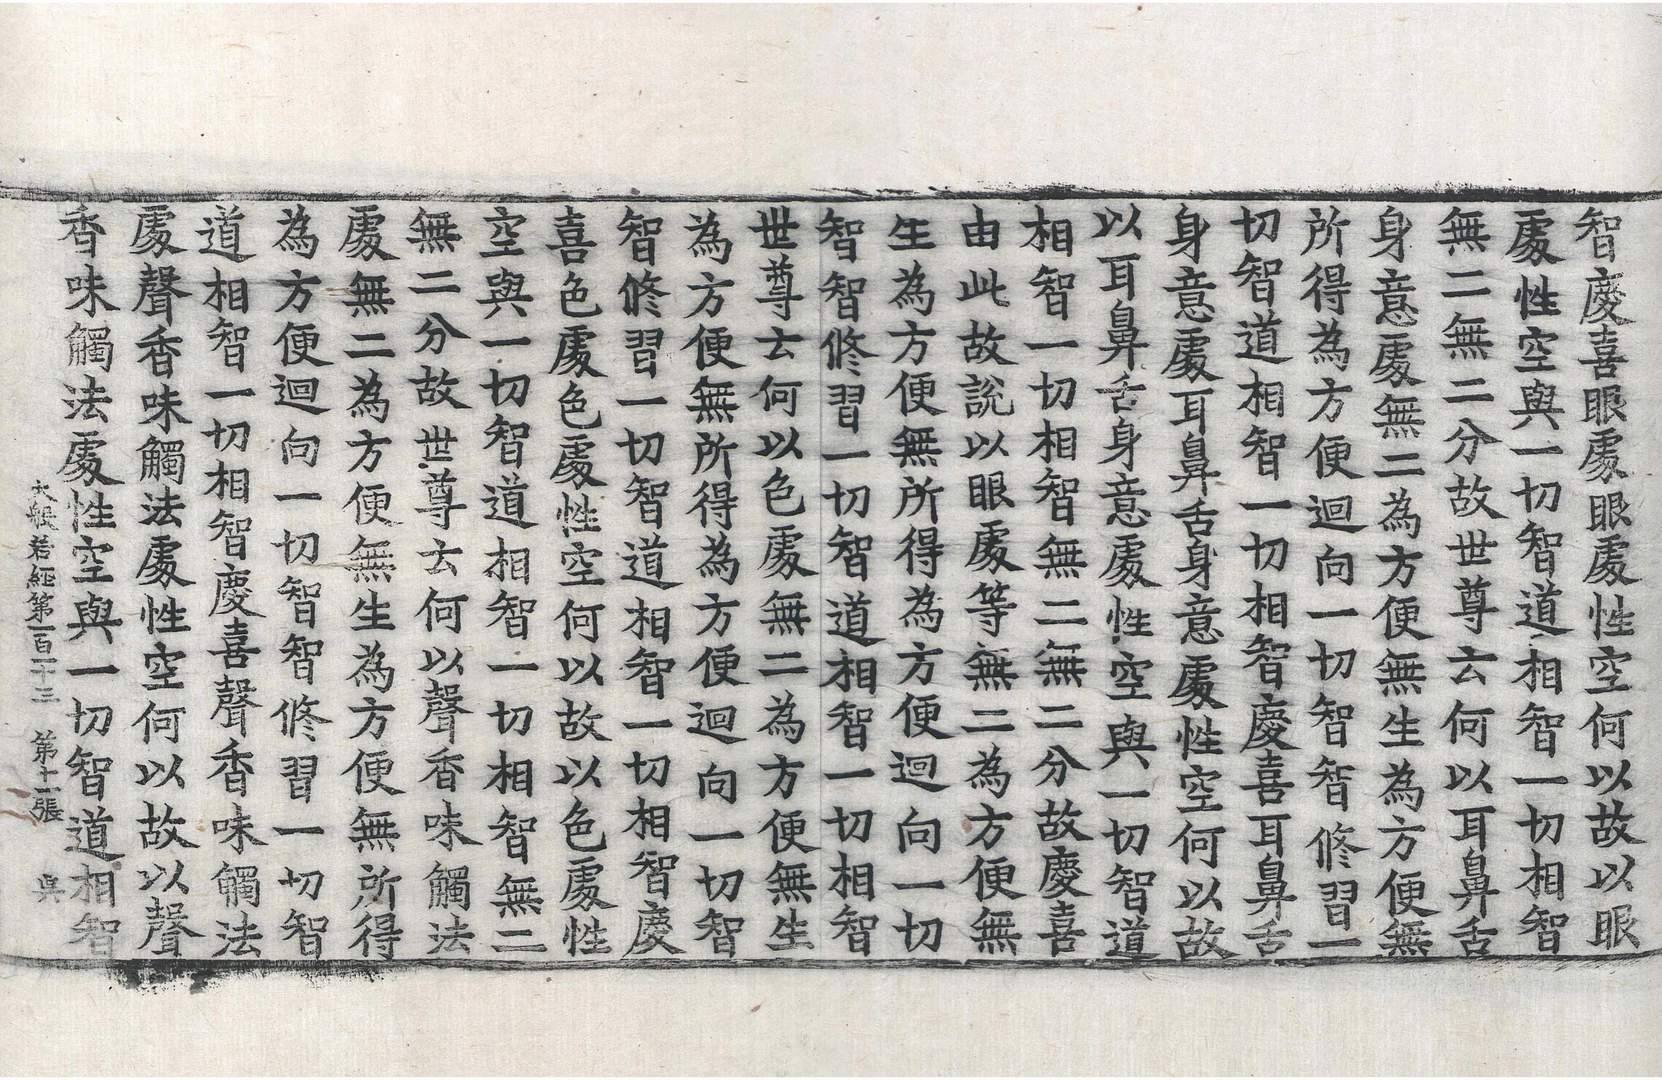 智慶喜眼處眼處性空何以故以眼
處性空與一切智道相智一切相智
無二無二分故世尊云何以耳鼻舌
身意處無二為方便無生為方便無
所得為方便迴向一切智智修習一
切智道相智一切相智慶喜耳鼻舌
身意處耳鼻舌身意處性空何以故
以耳鼻舌身意處性空與一切智道
相智一切相智無二無二分故慶喜
由此故說以眼處等無二為方便無
生為方便無所得為方便迴向一切
智智修習一切智道相智一切相智
世尊云何以色處無二為方便無生
為方便無所得為方便迴向一切智
智修習一切智道相智一切相智慶
喜色處色處性空何以故以色處性
空與一切智道相智一切相智無二
無二分故世尊云何以聲香味觸法
處無二為方便無生為方便無所得
為方便迴向一切智智修習一切智
道相智一切相智慶喜聲香味觸法
處聲香味觸法處性空何以故以聲
香味觸法處性空與一切智道相智
大般若經第一百一十三 第十一張 吳